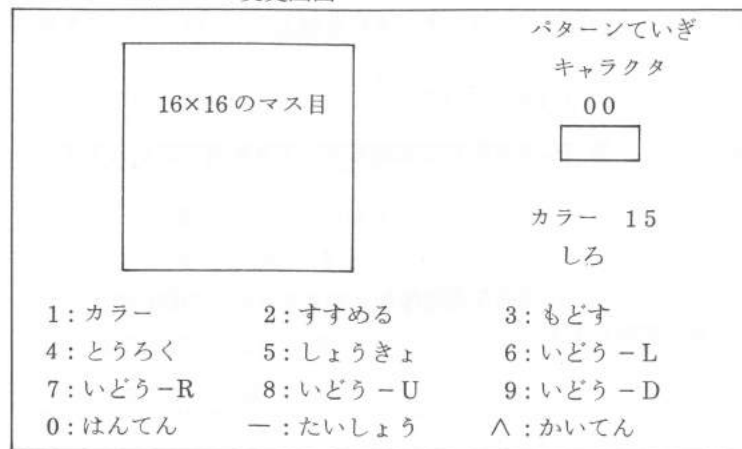 パターンていぎ
キャラクタ
16×16のマス目
00
カラー 15
しろ
1:カラー 2:すすめる 3:もどす
4:とうろく 5:しょうきょ 6:いどう−L
7:いどう−R 8:いどう−U 9:いどう−D
0:はんてん −:たいしょう ∧:かいてん